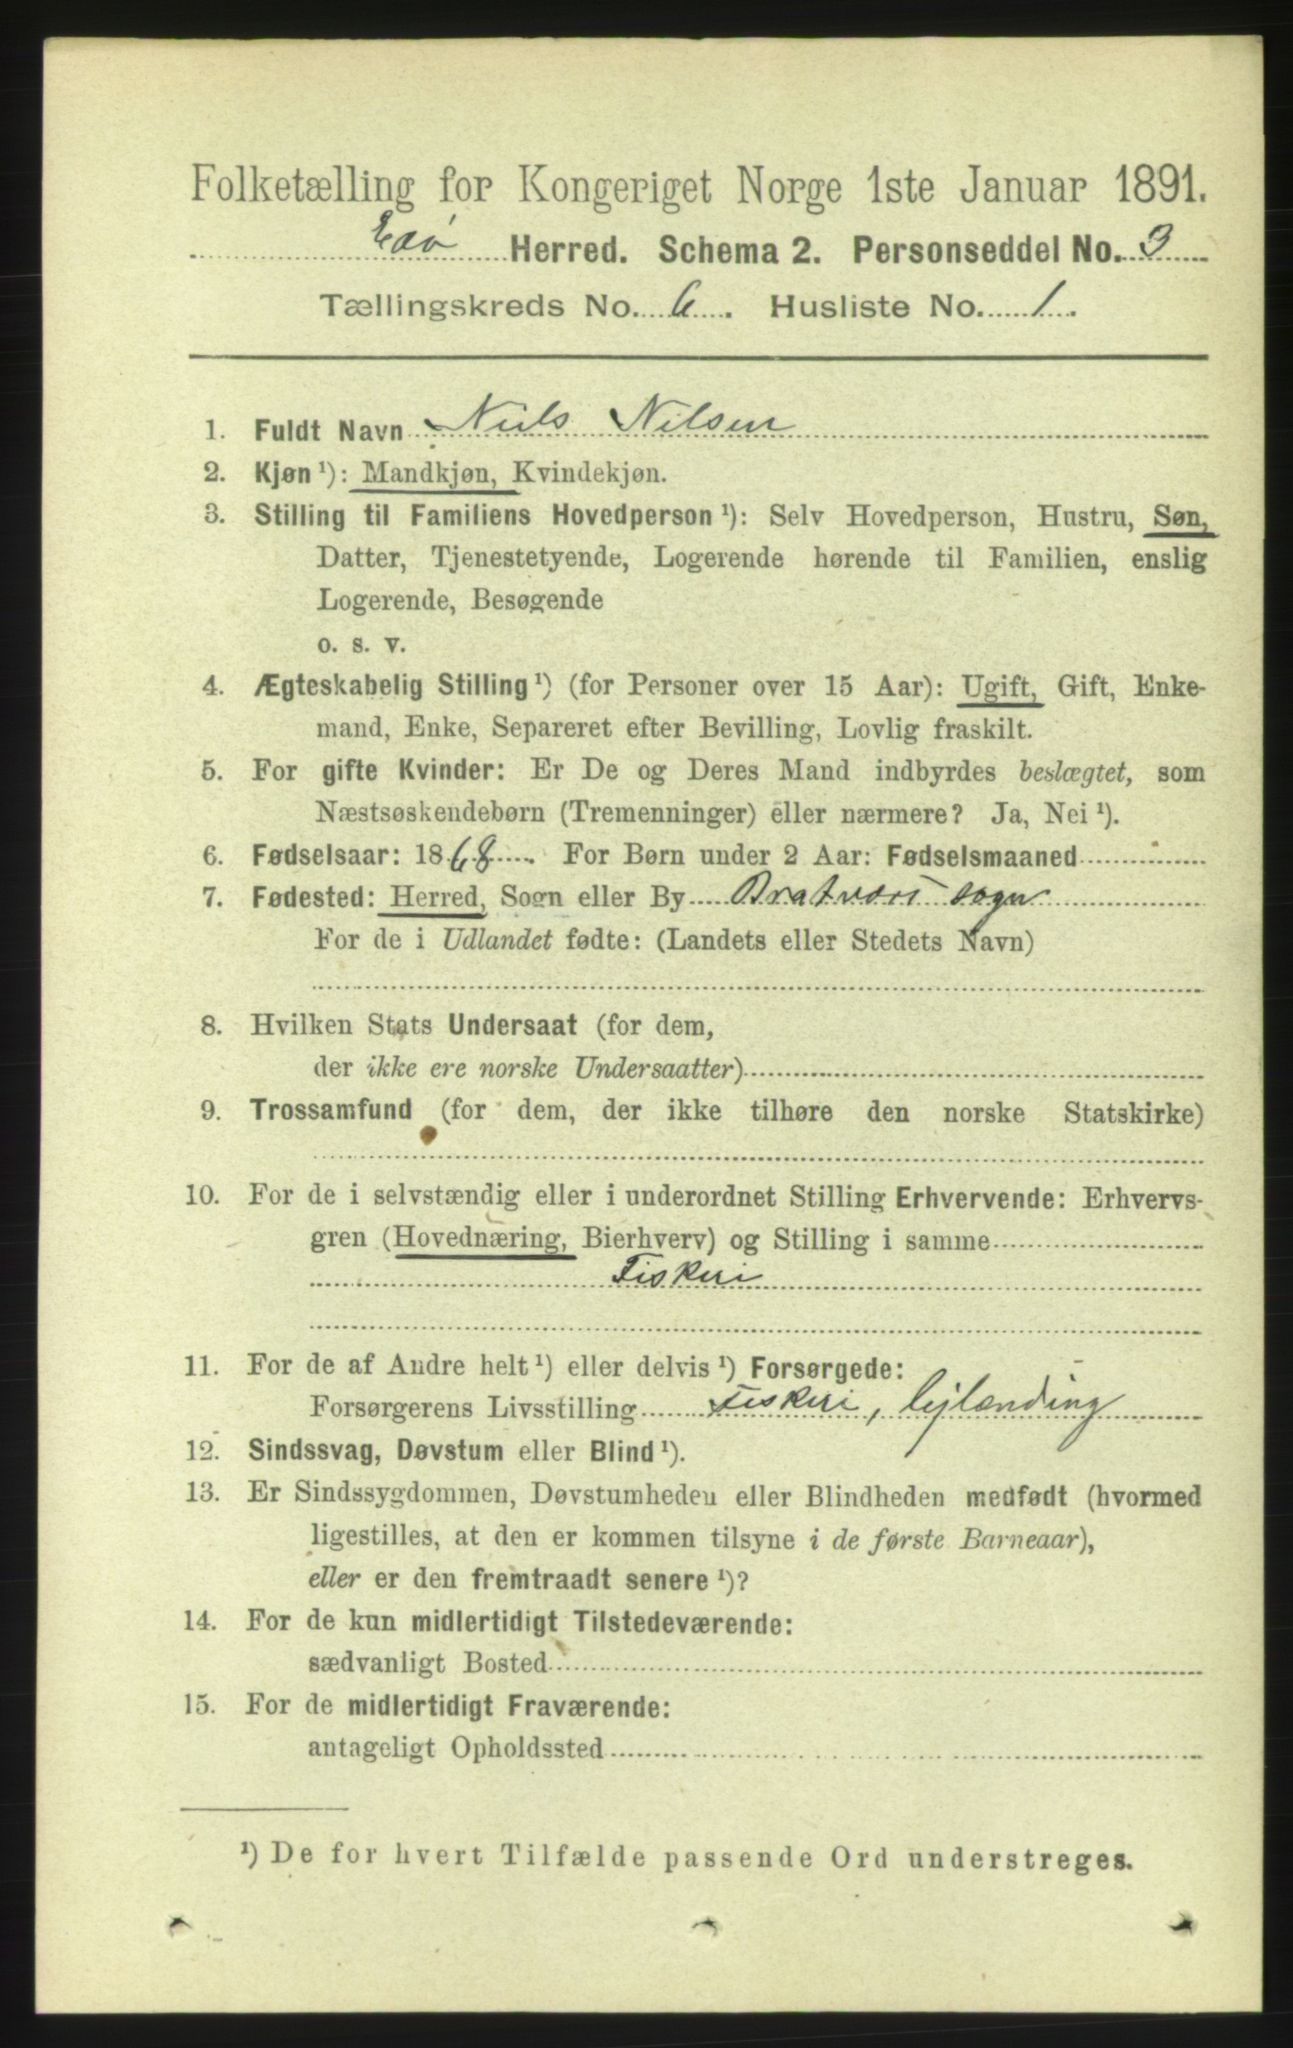 Folketælling for Kongeriget Norge 1ste Januar 1891.
Edø Herred. Schema 2. Personseddel No. 3
Tællingskreds No. 6. Husliste No. 1.
1. Fuldt Navn Niels Nilsen
2. Kjøn ¹): Mandkjøn, Kvindekjøn.
3. Stilling til Familiens Hovedperson ¹): Selv Hovedperson, Hustru, Søn,
Datter, Tjenestetyende, Logerende hørende til Familien, enslig
Logerende, Besøgende
o. s. v.
4. Ægteskabelig Stilling ¹) (for Personer over 15 Aar): Ugift, Gift, Enke-
mand, Enke, Separeret efter Bevilling, Lovlig fraskilt.
5. For gifte Kvinder: Er De og Deres Mand indbyrdes beslægtet, som
Næstsøskendebørn (Tremenninger) eller nærmere? Ja, Nei ¹).
6. Fødselsaar: 1868. For Børn under 2 Aar: Fødselsmaaned
7. Fødested: Herred, Sogn eller By Bratvær sogn
For de i Udlandet fødte: (Landets eller Stedets Navn)
8. Hvilken Stats Undersaat (for dem,
der ikke ere norske Undersaatter)
9. Trossamfund (for dem, der ikke tilhøre den norske Statskirke)
10. For de i selvstændig eller i underordnet Stilling Erhvervende: Erhvervs-
gren (Hovednæring, Bierhverv) og Stilling i samme
Fiskeri
11. For de af Andre helt ¹) eller delvis ¹) Forsørgede:
Forsørgerens Livsstilling Fiskeri, lejlænding
12. Sindssvag, Døvstum eller Blind ¹).
13. Er Sindssygdommen, Døvstumheden eller Blindheden medfødt (hvormed
ligestilles, at den er kommen tilsyne i de første Barneaar),
eller er den fremtraadt senere ¹)?
14. For de kun midlertidigt Tilstedeværende:
sædvanligt Bosted
15. For de midlertidigt Fraværende:
antageligt Opholdssted
¹) De for hvert Tilfælde passende Ord understreges.